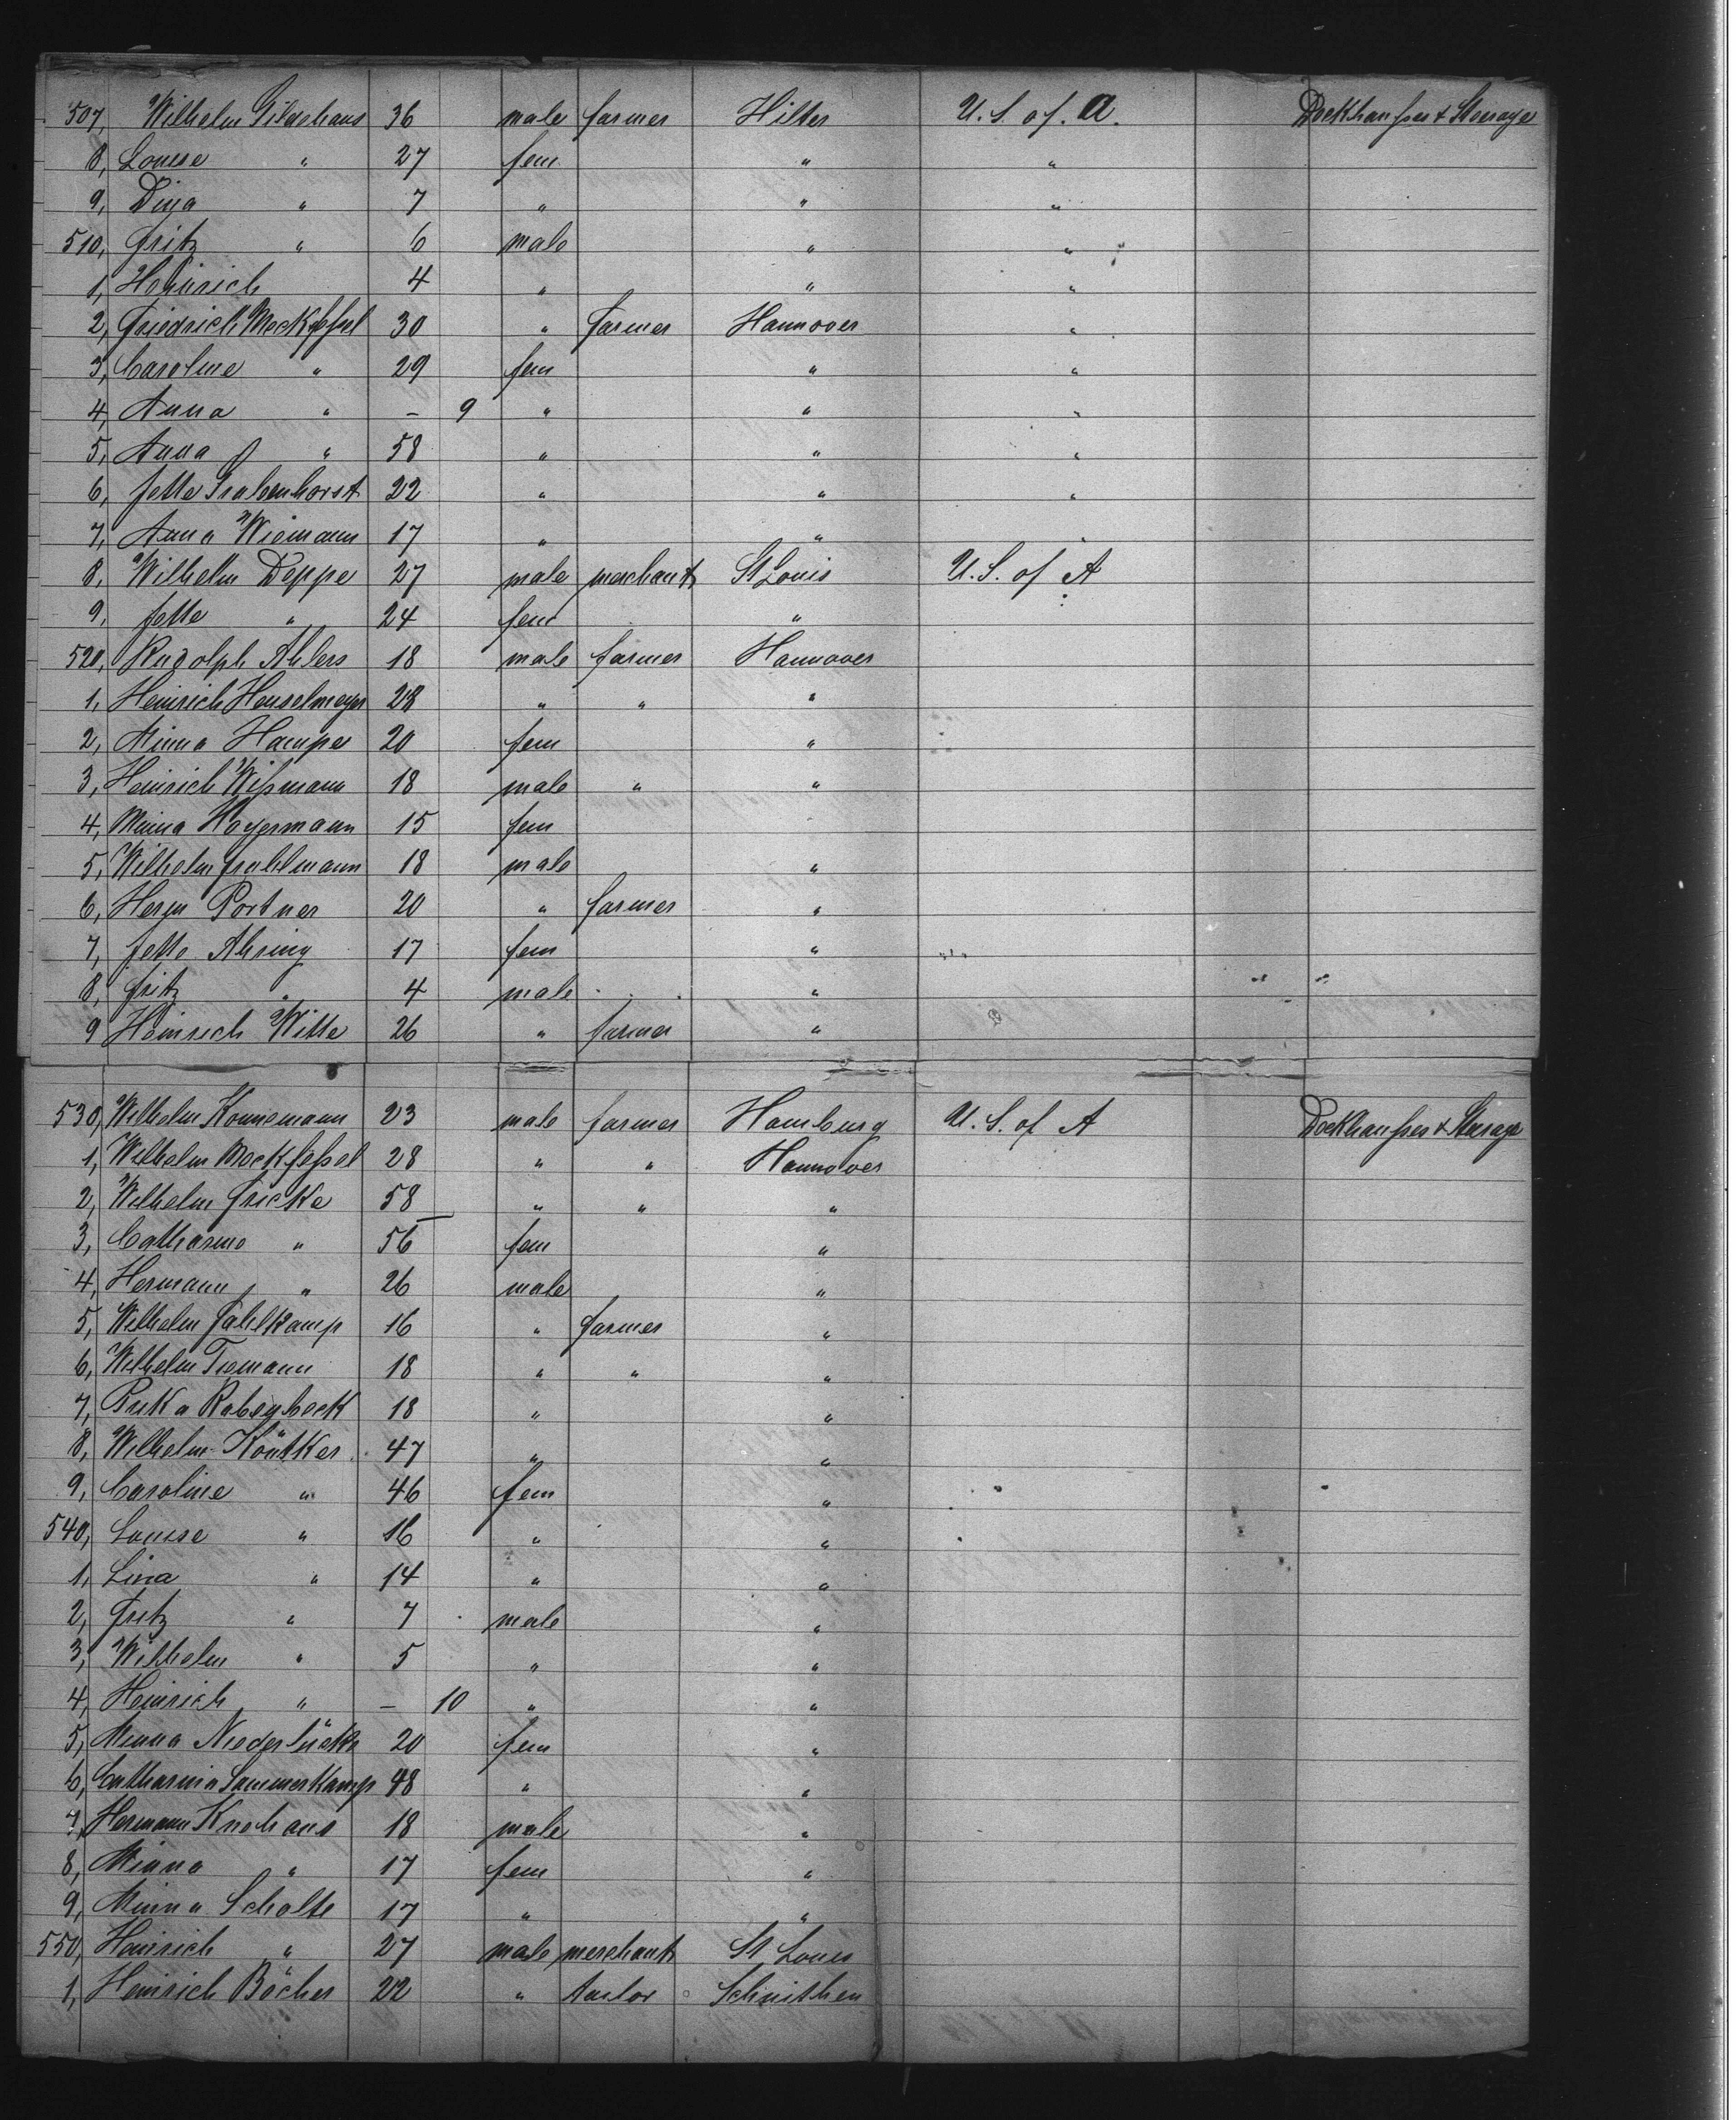 507, Wilhelm Gildehaus 36 male farmer Hilter U. S. of. A. Deckhauses & Steerage
8, Louise " 27 fem " "
9, Dina " 7 " " "
510, Fritz " 6 male " "
1, Heinrich 4 " " "
2, Friedrich Meckfessel 30 " farmer Hannover "
3, Caroline " 29 fem " "
4, Anna " – 9 " " "
5, Anna " 58 " " "
6, Jette Grabenhorst 22 " " "
7, Anna Wiemann 17 " " "
8, Wilhelm Deppe 27 male merchant St Louis U. S. of A
9, Jette " 24 fem "
520, Rudolph Ahlers 18 male farmer Hannover
1, Heinrich Henselmeyer 28 " " "
2, Minna Hampe 20 fem "
3, Heinrich Wißmann 18 male " "
4, Minna Hoyermann 15 fem
5, Wilhelm 18 male "
6, Herm Portner 20 " farmer "
7, Jette Ahring 17 fem "
8, Fritz " 4 male "
9 Heinrich Witte 26 " farmer "
530, Wilhelm Konnemann 23 male farmer Hamburg U. S. of A Deckhauses & Steerage
1, Wilhelm Meckfessel 28 " " Hannover
2, Wilhelm Fricke 58 " " "
3, Catharine " 56 fem "
4, Hermann " 26 male "
5, Wilhelm Fahlkamp 16 " farmer "
6, Wilhelm Tiemann 18 " " "
7, 18 " "
8, Wilhelm 47 " "
9, Caroline " 46 fem "
540, Louise " 16 " "
1, Lina " 14 " "
2, Fritz " 7 male "
3, Wilhelm " 5 " "
4, Heinrich " – 10 " "
5, Minna 20 fem "
6, Catharina Sommerkamp 48 " "
7, Hermann Knehans 18 male "
8, Minna " 17 fem "
9, Minna Scholte 17 " "
550, Heinrich " 27 male merchant St Louis
1, Heinrich Böcher 22 "